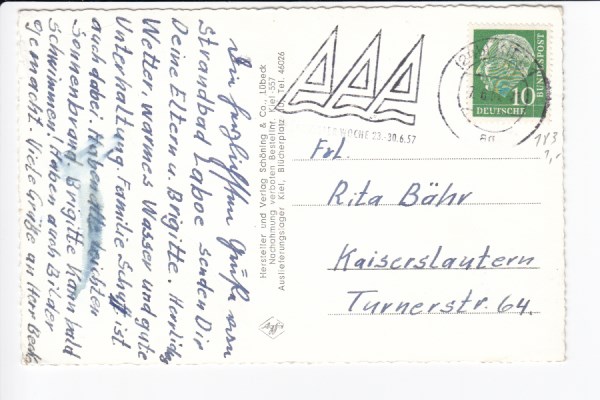 Die herzlichsten Grüße vom
Strandbad Laboe senden Dir
Deine Eltern u. Brigitte. Herrliches
Wetter, warmes Wasser und gute
Unterhaltung. Familie Schmidt ist
auch dabei. Haben alle leichten
Sonnenbrand. Brigitte kann bald
Schwimmen. Haben auch Bilder
gemacht. Viele Grüße an Herr Becker
Hersteller und Verlag Schöning & Co., Lübeck
Nachahmung verboten Bestellnr. Kiel 557
Auslieferungslager Kiel, Blücherplatz Tel. 46026
Agfa
WOCHE 23.-30.6.57
10
DEUTSCHE
BUNDESPOST
183
Frl.
Rita Bähr
Kaiserslautern
Turnerstr. 64.